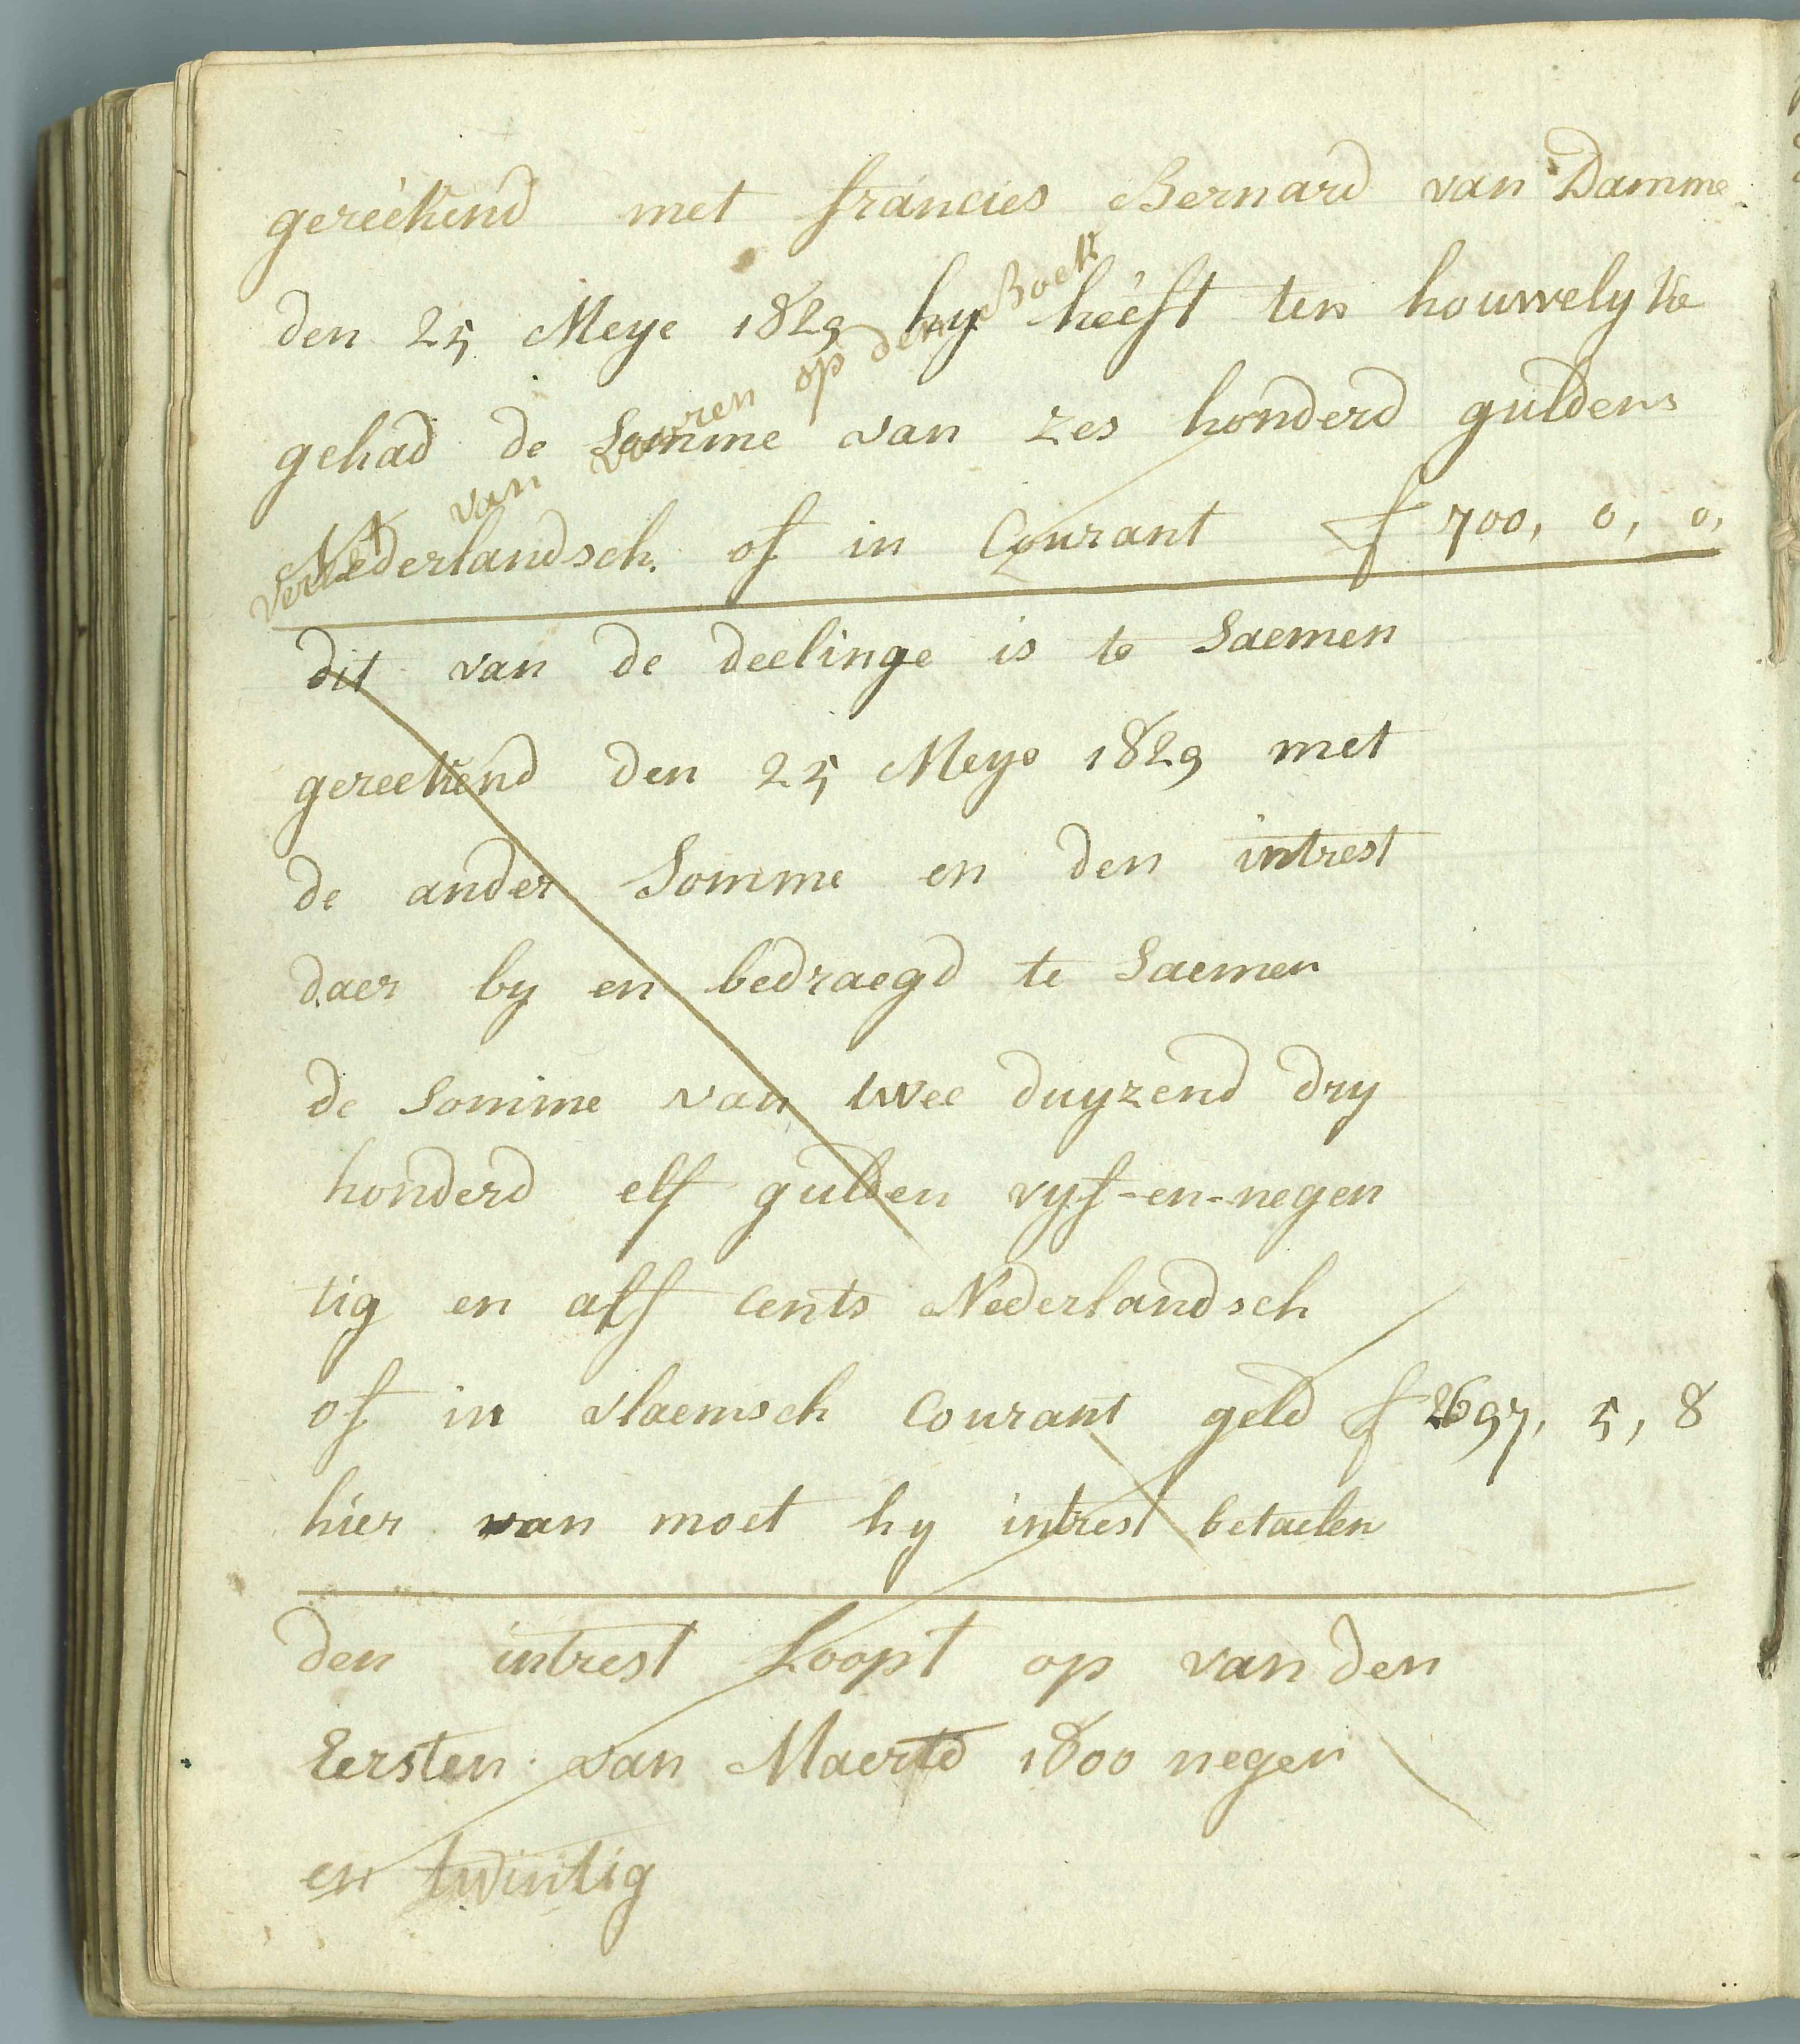 geréékend met fráncies Bernard van Damme
den 25 Meye 1829 hy héeft ten houwelyke
gehad de Somme van zes honderd guldens
Nederlandsch. of in Courant f 700, 0, 0,
van vooren op den Boek
dit van de deelinge is te Saemen
gereekend den 25 Meye 1829 met
de ander Somme en den intrest
daer by en bedraegd te Saemen
de Somme van twee duyzend dry
honderd elf gulden vyf-en-negen
tig en alf Cents Nederlandsch
of in vlaemsch Courant geld f 2697, 5, 8
hier van moet hy intrest betaelen
den intrest Loopt op van den
Eersten van Maerte 1800 negen
en twintig